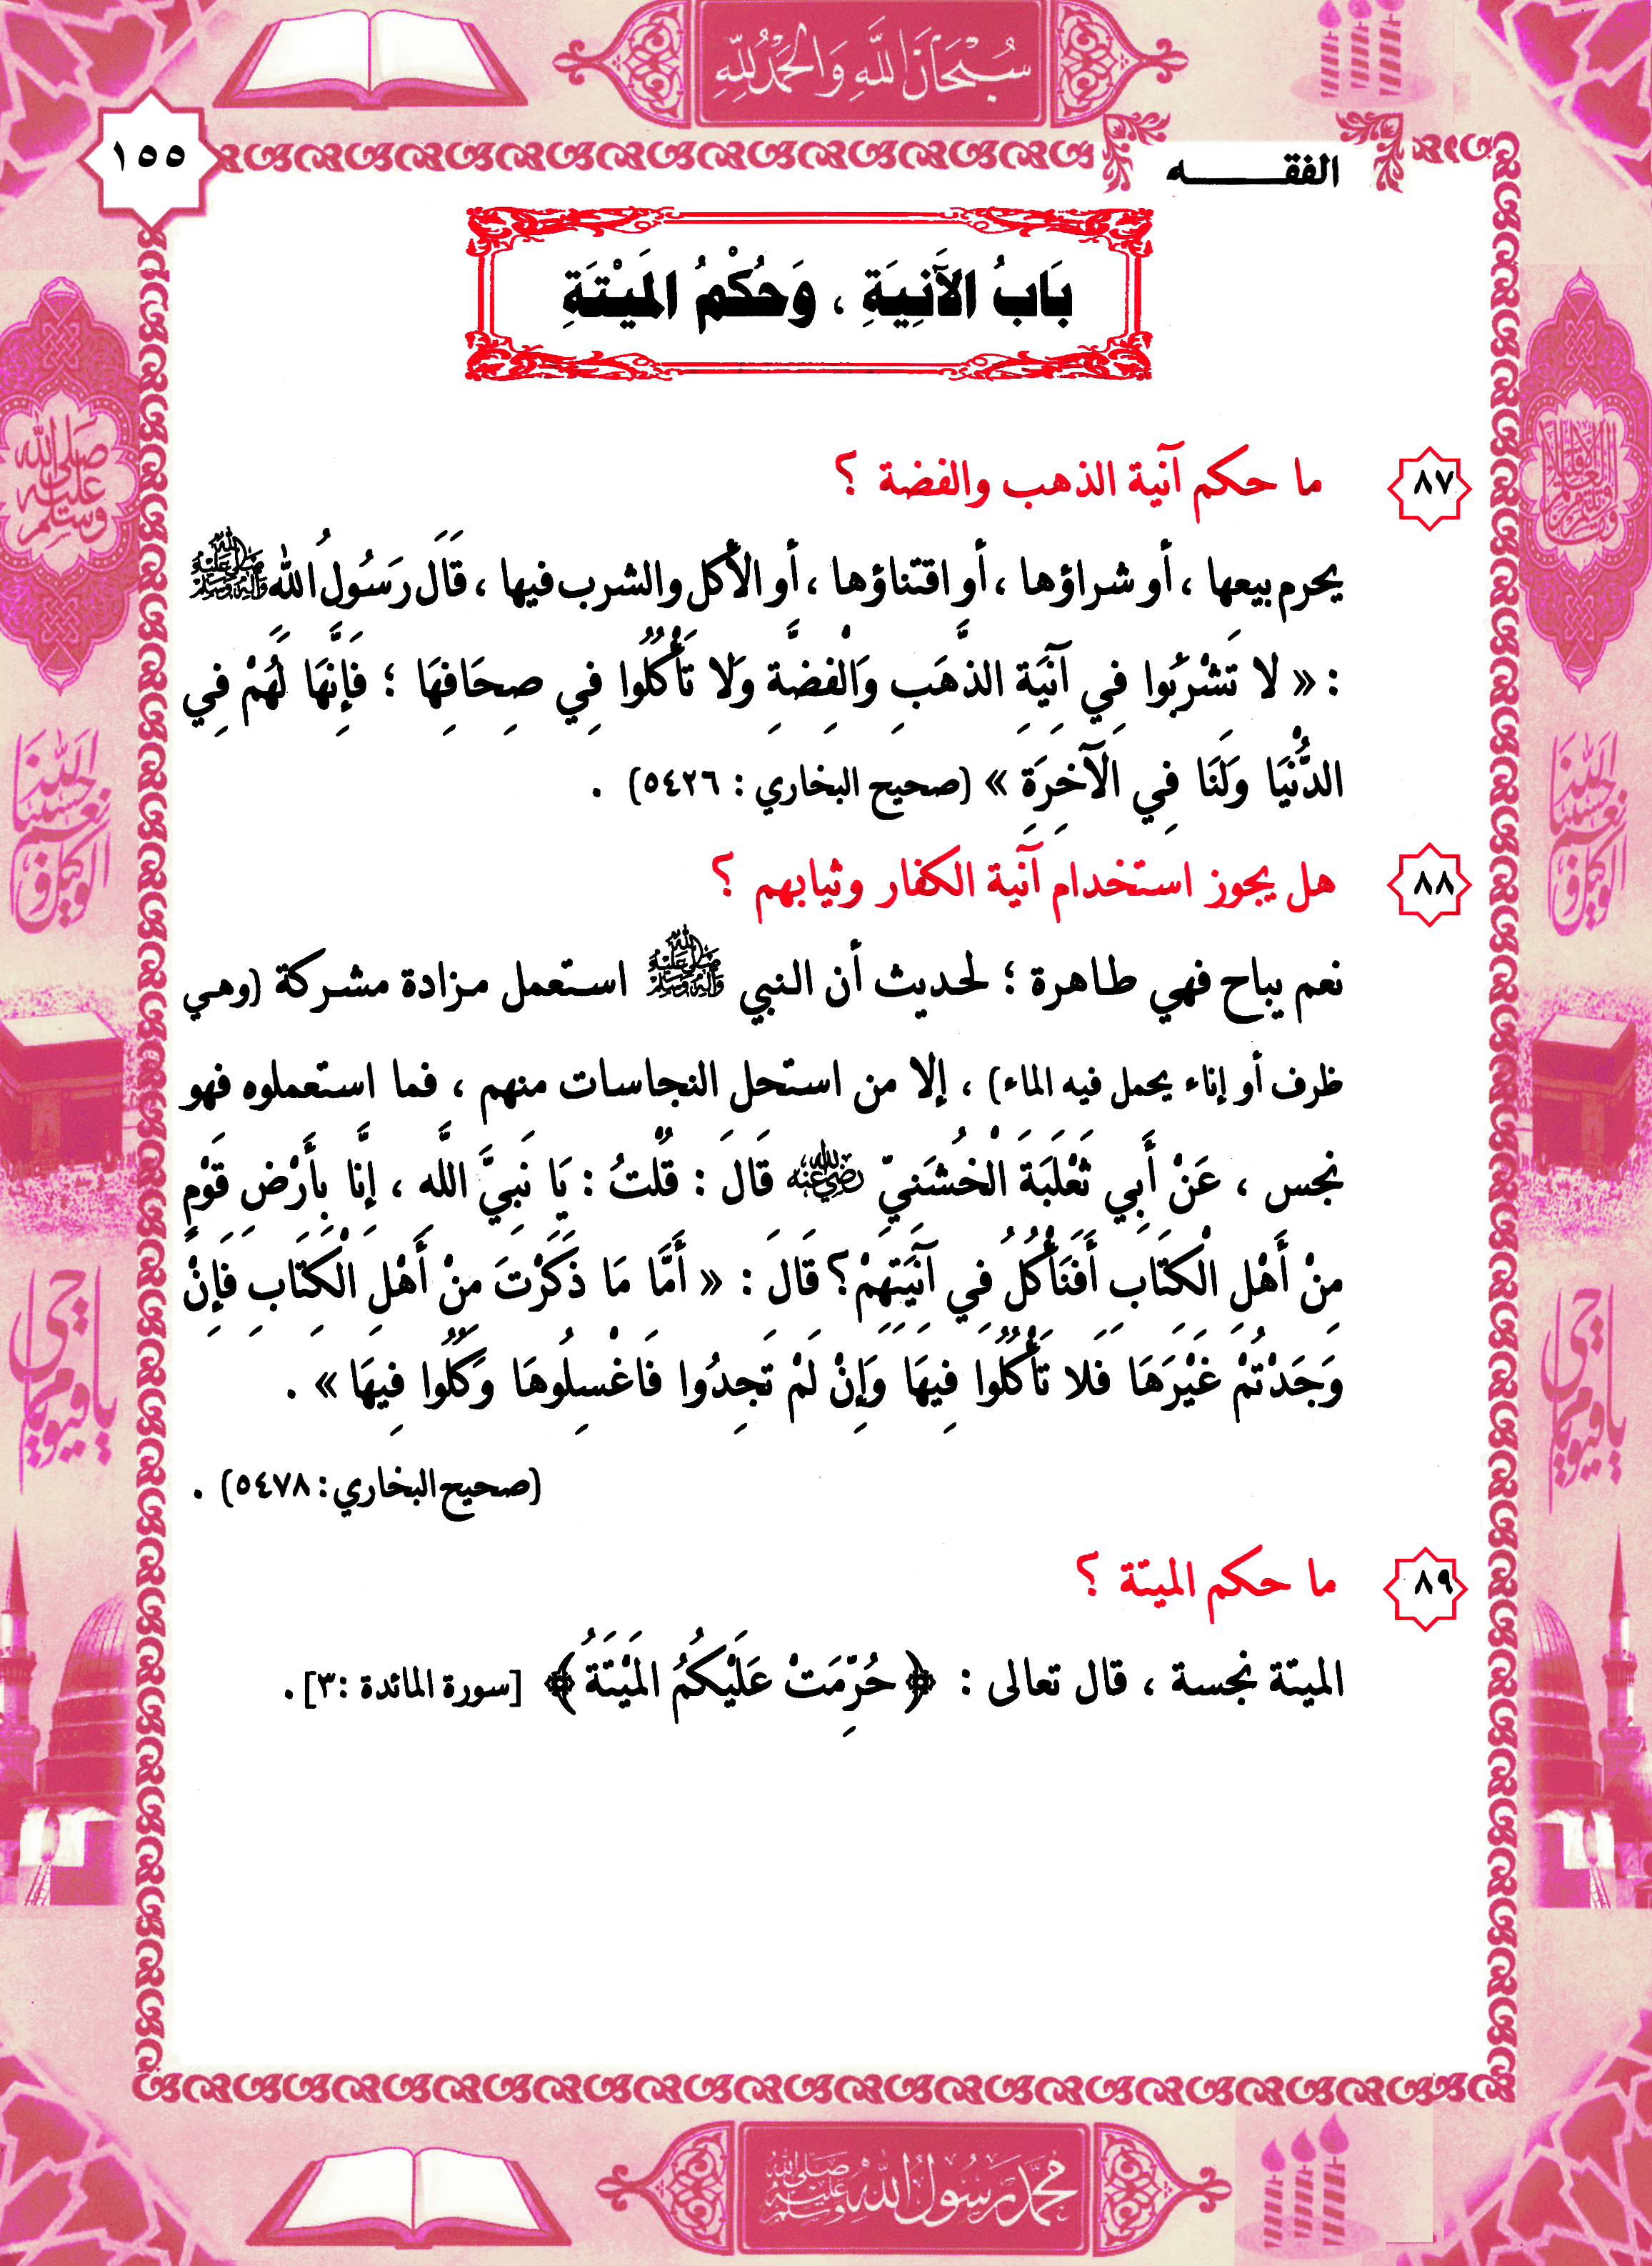 سُبْحَانَ اللَّهِ وَالحَمْدُ لِلَّهِ
١٥٥
الفقـــــه
بَابُ الآنِيَةِ ، وَحُكْمُ المَيْتَةِ
٨٧ ما حكم آنية الذهب والفضة ؟
يحرم بيعها ، أو شراؤها ، أو اقتناؤها ، أو الأكل والشرب فيها ، قَالَ رَسُولُ الله ﷺ
: « لا تَشْرَبُوا فِي آنِيَةِ الذَّهَبِ وَالْفِضَّةِ وَلا تَأْكُلُوا فِي صِحَافِهَا ؛ فَإِنَّهَا لَهُمْ فِي
الدُّنْيَا وَلَنَا فِي الآخِرَةِ » (صحيح البخاري : ٥٤٢٦) .
٨٨ هل يجوز استخدام آنية الكفار وثيابهم ؟
نعم يباح فهي طاهرة ؛ لحديث أن النبي ﷺ استعمل مزادة مشركة (وهي
ظرف أو إناء يحمل فيه الماء) ، إلا من استحل النجاسات منهم ، فما استعملوه فهو
نجس ، عَنْ أَبِي ثَعْلَبَةَ الْخُشَنِيّ رضي الله عنه قَالَ : قُلْتُ : يَا نَبِيَّ اللَّه ، إِنَّا بِأَرْضِ قَوْمٍ
مِنْ أَهْلِ الْكِتَابِ أَفَنَأْكُلُ فِي آنِيَتِهِمْ؟ قَالَ : « أَمَّا مَا ذَكَرْتَ مِنْ أَهْلِ الْكِتَابِ فَإِنْ
وَجَدْتُمْ غَيْرَهَا فَلا تَأْكُلُوا فِيهَا وَإِنْ لَمْ تَجِدُوا فَاغْسِلُوهَا وَكُلُوا فِيهَا » .
(صحيح البخاري : ٥٤٧٨) .
٨٩ ما حكم الميتة ؟
الميتة نجسة ، قال تعالى : ﴿حُرِّمَتْ عَلَيْكُمُ المَيْتَةُ﴾ [سورة المائدة :٣].
صلى الله عليه وسلم
حسبنا الله ونعم الوكيل
حسبنا الله ونعم الوكيل
يا حي يا قيوم
يا حي يا قيوم
محمد رسول الله صلى الله عليه وسلم